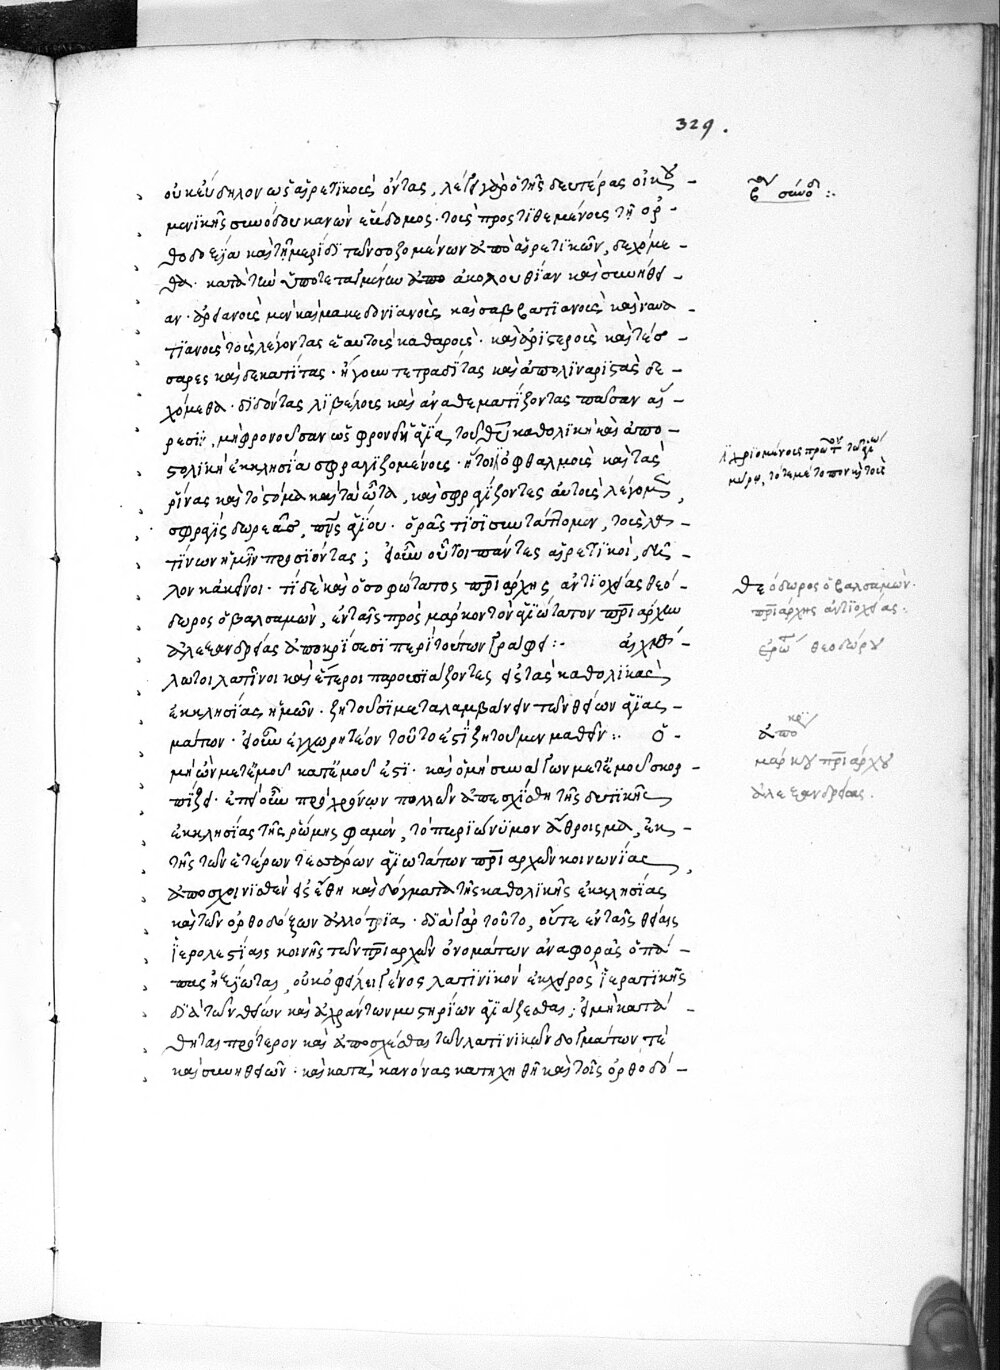 329.
οὐκ εὔδηλον ὡς αἱρετικοὺς ὄντας, λέγει γὰρ ὁ τῆς δευτέρας οἰκου-
μενικῆς συνόδου κανὼν ἕβδομος· τοὺς προστιθεμένους τῇ ὀρ-
θοδοξία καὶ τῇ μερίδι τῶν σοζομένων ἀπὸ αἱρετικῶν, δεχόμε-
θα· κατὰ τὴν ὑποτεταγμένην ἀκολουθίαν καὶ συνήθει-
αν· ἀρειανοὺς μὲν καὶ μακεδονιανοὺς καὶ σαββατιανοὺς καὶ ναυα-
τιανοὺς τοὺς λέγοντας ἑαυτοὺς καθαροὺς· καὶ ἀριστεροὺς καὶ τέσ-
σαρες καὶ δεκατίτας· ἤγουν τετραδίτας καὶ ἀπολιναριστὰς δε-
χόμεθα· διδόντας λιβέλους καὶ ἀναθεματίζοντας πᾶσαν αἵ-
ρεσιν, μὴ φρονοῦσαν ὡς φρονεῖ ἡ ἁγία τοῦ θῦ καθολικὴ καὶ ἀπο-
στολικὴ ἐκκλησία σφραγιζομένους· ἤτοι ὀφθαλμοὺς καὶ τὰς
ῥῖνας καὶ τὸ στόμα καὶ τὰ ὦτα, καὶ σφραγίζοντες αὐτοὺς λέγομεν,
σφραγὶς δωρεᾶς πνς ἁγίου· ὁρᾶς τίσι συντάττομεν, τοὺς λα-
τίνων ἡμῖν προσιόντας; εἰ οὖν οὗτοι πάντες αἱρετικοὶ, δῆ-
λον κἀκεῖνοι· τί δὲ καὶ ὁ σοφώτατος πριάρχης ἀντιοχείας θεό-
δωρος ὁ βαλσαμὼν, ἐν ταῖς πρὸς μάρκον τὸν ἁγιώτατον πριάρχην
ἀλεξανδρείας ἀποκρίσεσι περὶ τούτων γράφει:- αἰχμά-
λωτοι λατῖνοι καὶ ἕτεροι παρουσιάζοντες εἰς τὰς καθολικὰς
ἐκκλησίας ἡμῶν· ζητοῦσι μεταλαμβάνειν τῶν θείων ἁγιασ-
μάτων· εἰ οὖν ἐγχωρητέον τοῦτο ἐπιζητοῦμεν μαθεῖν:· Ὁ-
μὴ ὢν μετ' ἐμοῦ κατ' ἐμοῦ ἐστι· καὶ ὁ μὴ συνάγων μετ' ἐμοῦ σκορ-
πίζει· ἐπεὶ οὖν πρὸ χρόνων πολλῶν ἀπεσχίσθη τῆς δυτικῆς
ἐκκλησίας τῆς ῥώμης φαμὲν, τὸ περιώνυμον ἄθροισμα, ἐκ-
τῆς τῶν ἑτέρων τεσσάρων ἁγιωτάτων πριαρχῶν κοινωνίας,
ἀποσχοινισθὲν εἰς ἔθη καὶ δόγματα τῆς καθολικῆς ἐκκλησίας
καὶ τῶν ὀρθοδόξων ἀλλότρια· διὰ γὰρ τοῦτο, οὔτε ἐν ταῖς θείαις
ἱερολεστίαις κοινῆς τῶν πριαρχῶν ὀνομάτων ἀναφορᾶς ὁ πά-
πας ἠξίωται, οὐκ ὀφείλει γένος λατινικὸν ἐκ χειρὸς ἱερατικῆς
διὰ τῶν θείων καὶ ἀχράντων μυστηρίων ἁγιάζεσθαι, εἰ μὴ κατά-
θηται πρότερον καὶ ἀποσχέσθαι τῶν λατινικῶν δογμάτων τὲ
καὶ συνηθειῶν· καὶ κατὰ κανόνας κατηχηθῆ καὶ τοῖς ὀρθοδό-
σύνοδ :·
θεόδωρος ὁ βαλσαμὼν·
πριάρχης ἀντιοχείας·
ἐρώ θεοδώρου
ἀπο κρι
μάρκου πριάρχου
ἀλεξανδρείας.